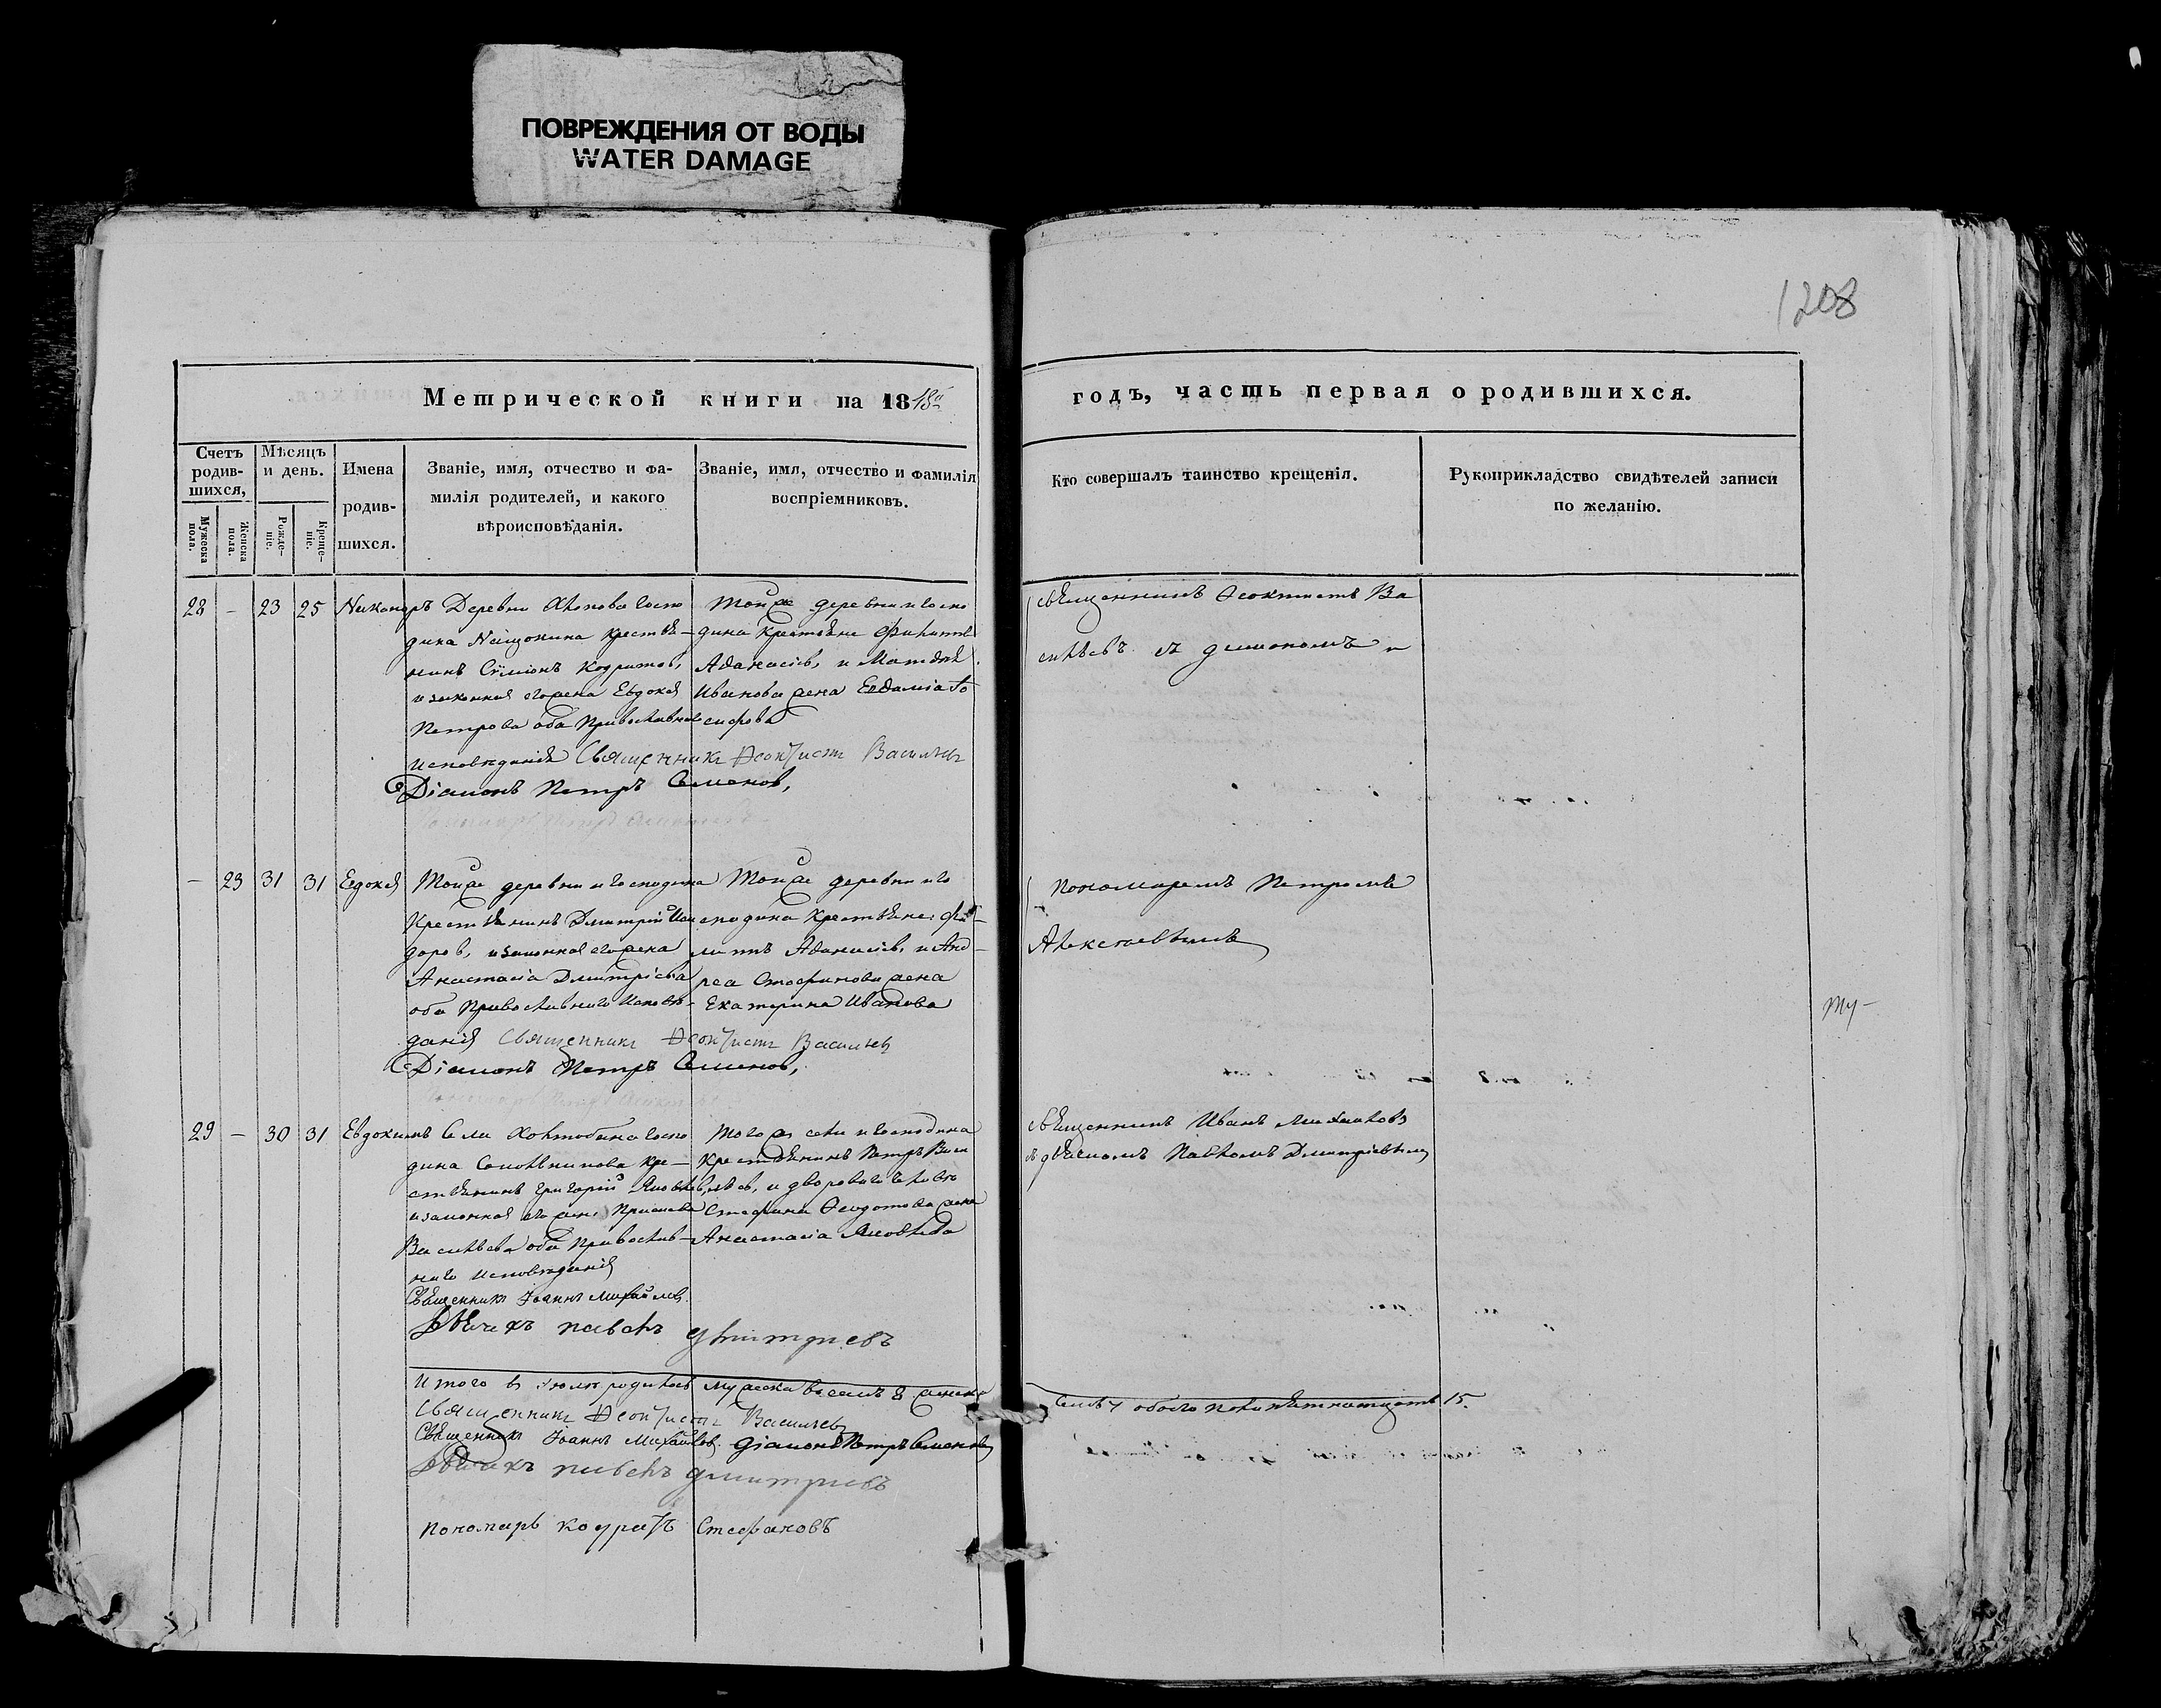 ПОВРЕЖДЕНИЯ ОТ ВОДЫ
WATER DAMAGE
1208
Метрической книги на 18
годъ, часть первая о родившихся.
Счетъ родив-шихся,
Мужеска пола.
Женска пола.
Мѣсяцъ и день.
Рожде-ніе.
Креще-ніе.
Имена родив-шихся.
Званіе, имя, отчество и фа-
милія родителей, и какого
вѣроисповѣданія.
Званіе, имя, отчество и фамилія
воспріемниковъ.
Кто совершалъ таинство крещенія.
Рукоприкладство свидѣтелей записи
по желанію.
28 – 23 25 Никаноръ
Деревни госпо
дина Нащокина крестья-
нинъ Сѵмеонъ Кодратов,
и законная его жена Евдокія
Петрова оба Православнаго
исповѣданія Священникъ Ѳеоктист Васильев
Діаконъ Петръ Семенов,
Тойже деревни и госпо
дина крестьяне Филиппъ
Аѳанасіев, и Матвѣя
Иванова жена Іо
сифова
священникъ Ѳеоктистъ Ва
сильевъ съ дьякономъ
– 23 31 31 Евдокія
Тойже деревни и господина
Крестьянинъ Дмитрій
доров, и законная его жена
Анастасіа Дмитріева
оба Православнаго исповѣ-
данія Священникъ Ѳеоктистъ Васильев
Діаконъ Петръ Семенов,
Тойже деревни и го
сподина крестьяне: Фи-
липпъ Аѳанасіев, и Анд-
реа Стефанова жена
Екатерина Иванова
Пономаремъ Петромъ
Алексѣевымъ
ту-
29 – 30 31 Евдокимъ
Села госпо
дина кре-
стьянинъ Григорій Яковлев,
и законная его жена
Васильева оба Православ-
наго исповѣданія
Священникъ Іоаннъ Михайлов
Дьячекъ Павелъ Дмитриевъ
Тогоже села и господина
Крестьянинъ Петръ Васи
льев, и двороваго человѣ
Стефана Ѳеодотова жена
Анастасіа Яковлева
священникъ Иванъ Михайловъ
съ дьячкомъ Павломъ Дмитріевымъ
Итого в Іюлѣ родилось мужеска восемь 8 женска
семь 7 обоего пола пятнатцать 15.
Священникъ Ѳеоктистъ Васильев
Священникъ Іоаннъ Михайлов, діаконъ Петръ Семенов
Дьячекъ Павелъ Дмитриевъ
Пономарь Кодратъ Стефановъ